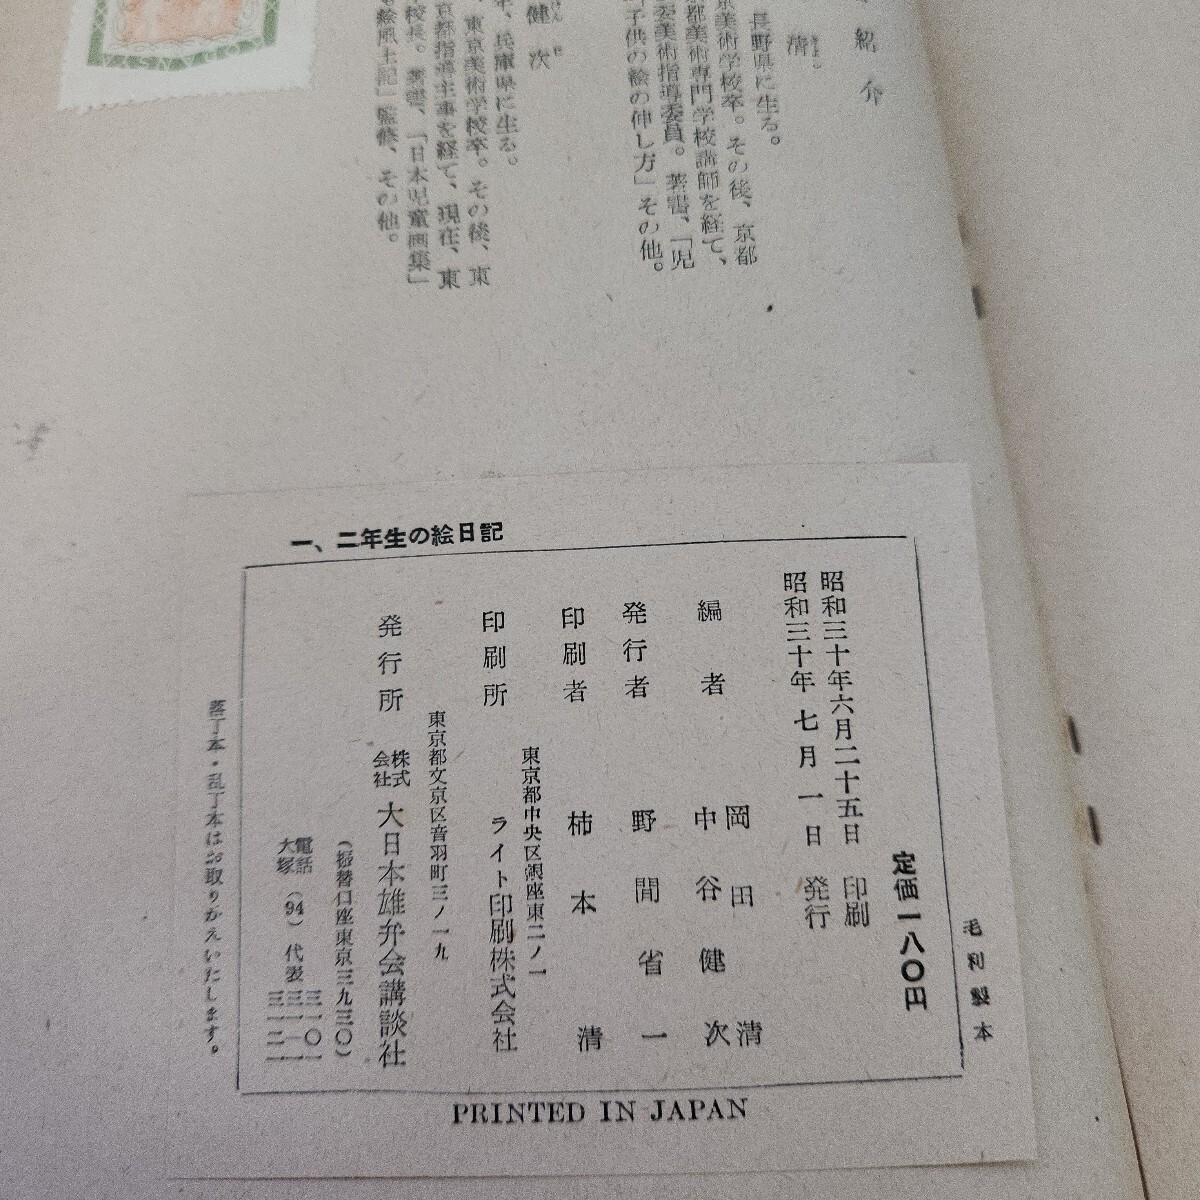 紹介
清
きよし
長野県に生る。
京美術学校卒。その後、京都
都美術専門学校講師を経て、
委美術指導委員。著書、「児
子供の絵の伸し方」その他。
健次
けんじ
年、兵庫県に生る。
東京美術学校卒。その後、東
京都指導主事を経て、現在、東
校長。著書、「日本児童画集」
絵風土記」監修、その他。
一、二年生の絵日記
毛利製本
定価一八〇円
昭和三十年六月二十五日 印刷
昭和三十年七月一日 発行
編者 岡田清
中谷健次
発行者 野間省一
印刷者 柿本清
東京都中央区銀座東二ノ一
印刷所 ライト印刷株式会社
東京都文京区音羽町三ノ一九
発行所 株式会社 大日本雄弁会講談社
(振替口座東京三九三〇)
電話大塚(94)代表 三一〇一
三一一一
三一二一
落丁本・乱丁本はお取りかえいたします。
PRINTED IN JAPAN